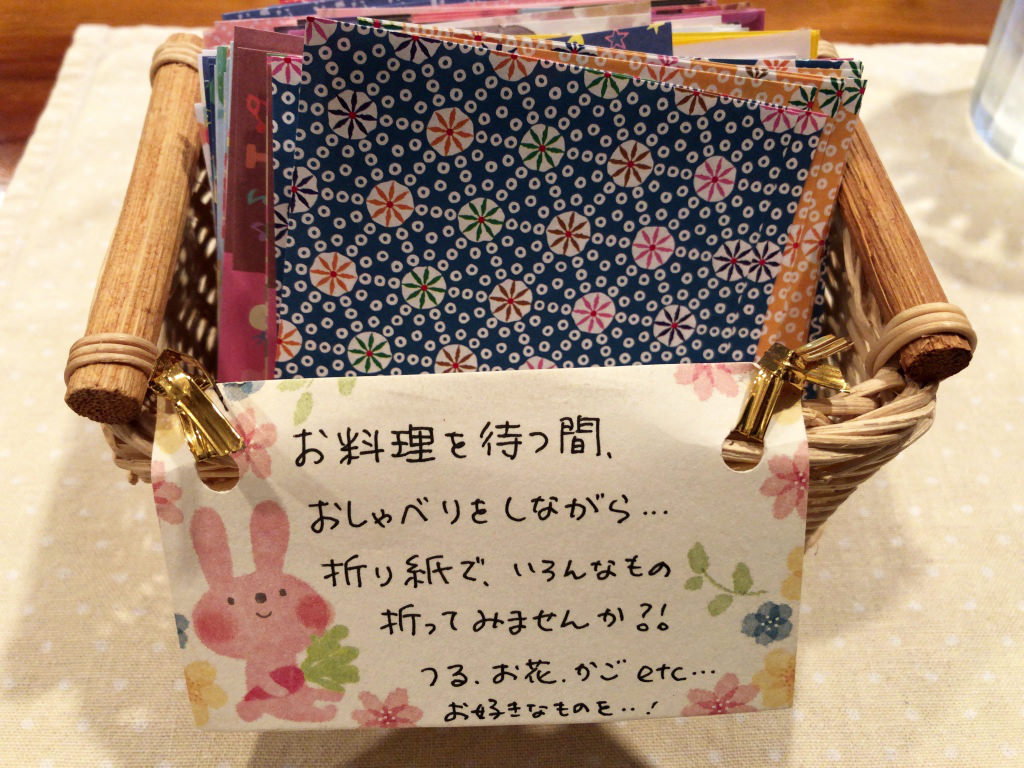 お料理を待つ間、
おしゃべりをしながら…
折り紙で、いろんなもの
折ってみませんか?!
つる、お花、かご etc…
お好きなものを‥!